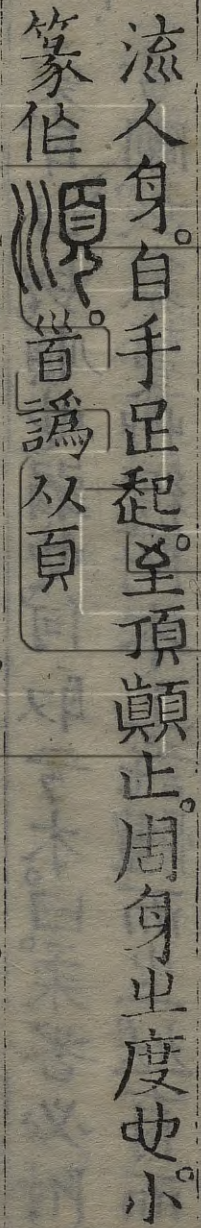 流人身。自手足起。至頂顛止。周身㞢度也。小
篆作𩠐。𩠐譌从頁